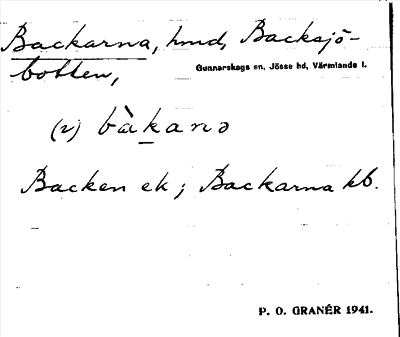 Backarna, hmd, Backsjö-
botten,
Gunnarskogs sn, Jösse hd, Värmlands l.
(v) bàkanə
Backen ek; Backarna kb.
P. O. GRANÉR 1941.